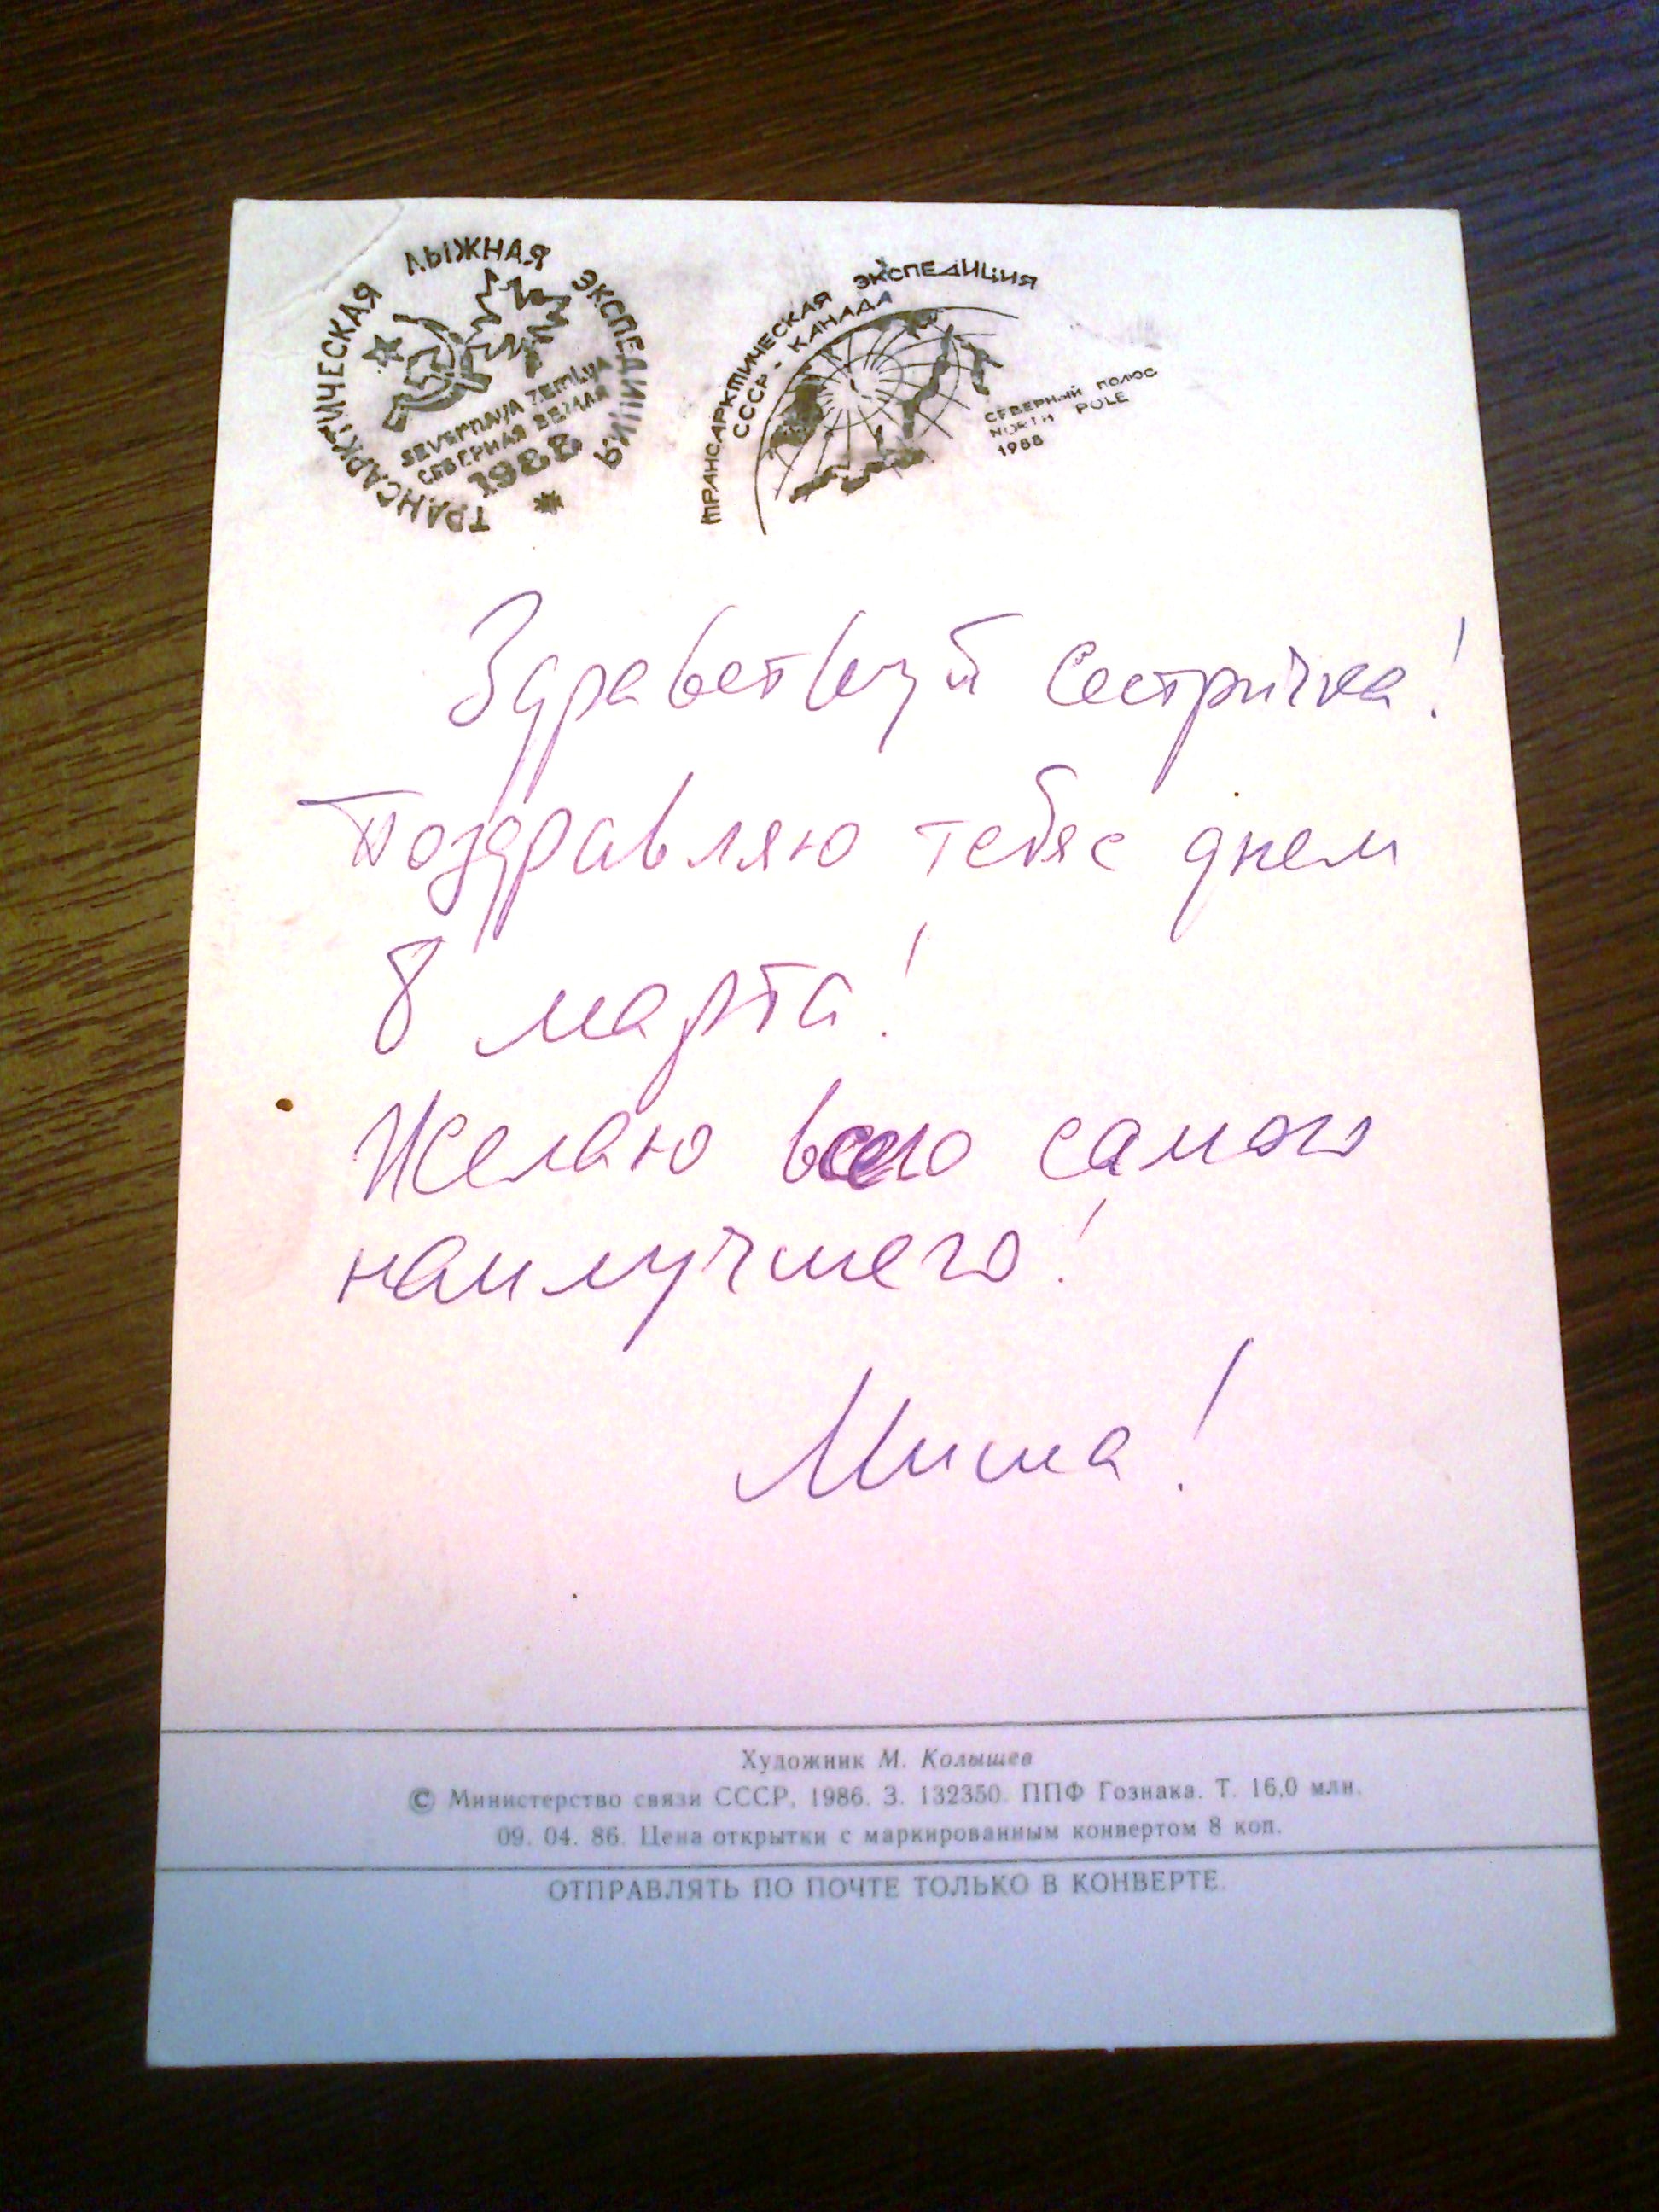 ТРАНСАРКТИЧЕСКАЯ ЛЫЖНАЯ ЭКСПЕДИЦИЯ
SEVERNAJA ZEMLJA
СЕВЕРНАЯ ЗЕМЛЯ
1988
ТРАНСАРКТИЧЕСКАЯ ЭКСПЕДИЦИЯ
СССР - КАНАДА
СЕВЕРНЫЙ ПОЛЮС
NORTH POLE
1988
Здравствуй Сестричка!
Поздравляю тебя с днем
8 марта!
Желаю всего самого
наилучшего!
Миша!
Художник М. Колышев
© Министерство связи СССР, 1986. З. 132350. ППФ Гознака. Т. 16,0 млн.
09. 04. 86. Цена открытки с маркированным конвертом 8 коп.
ОТПРАВЛЯТЬ ПО ПОЧТЕ ТОЛЬКО В КОНВЕРТЕ.